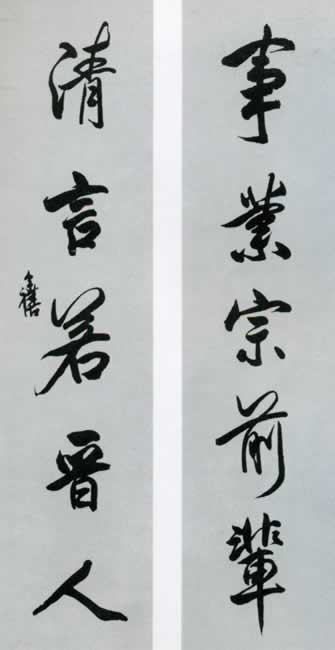 事業宗前輩
清言若晋人